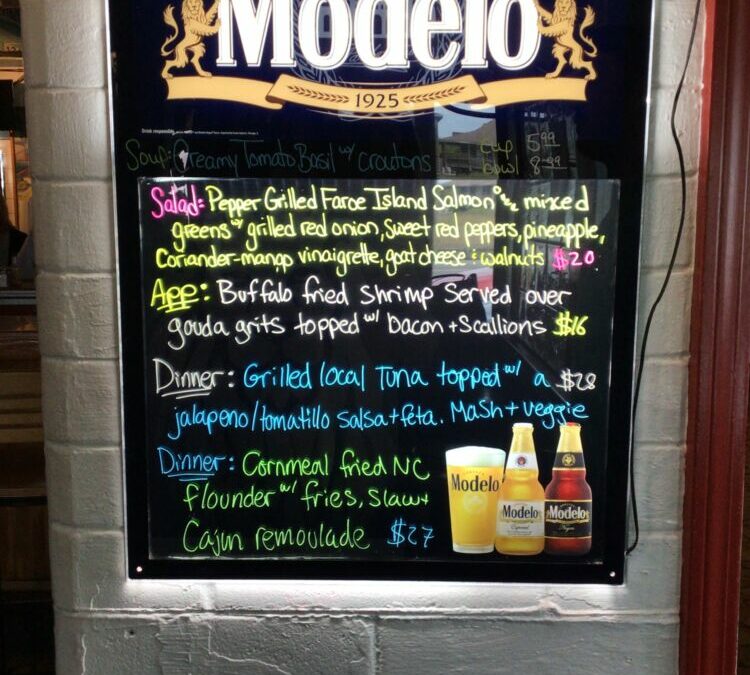 Modelo
1925
Drink responsibly.
Soup: Creamy Tomato Basil w/ croutons cup 5.99
bowl 8.99
Salad: Pepper Grilled Faroe Island Salmon over mixed
greens w/ grilled red onion, sweet red peppers, pineapple,
Coriander-mango vinaigrette, goat cheese & walnuts $20
App: Buffalo fried shrimp Served over
gouda grits topped w/ bacon + Scallions $16
Dinner: Grilled local Tuna topped w/ a $28
jalapeno/tomatillo salsa + feta. Mash + veggie
Dinner: Cornmeal fried NC
flounder w/ fries, Slaw +
Cajun remoulade $27
Modelo
Modelo
Especial
Modelo
Negra